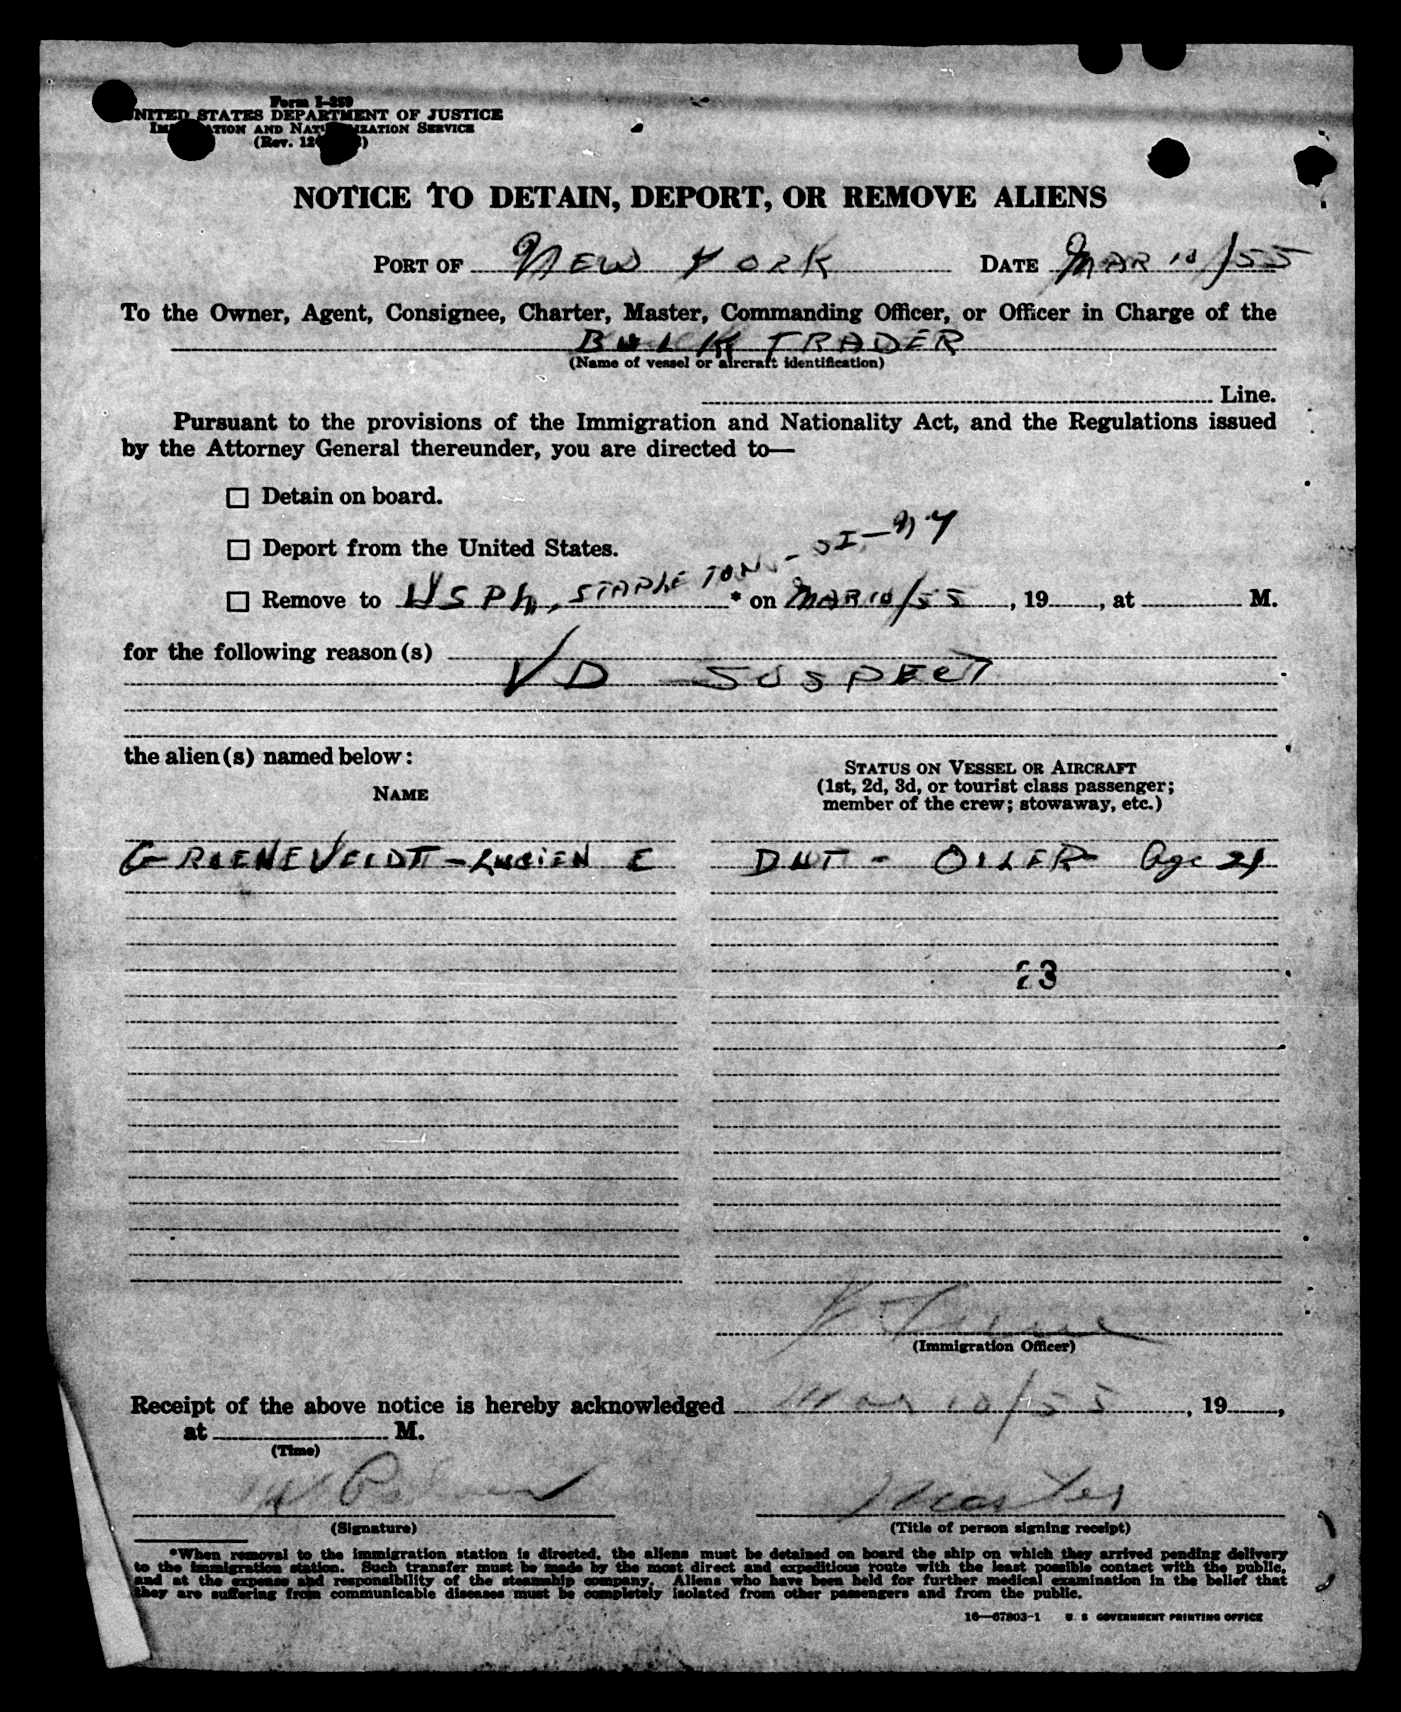 Form I-259
UNITED STATES DEPARTMENT OF JUSTICE
IMMIGRATION AND NATURALIZATION SERVICE
(Rev. 12
NOTICE TO DETAIN, DEPORT, OR REMOVE ALIENS
PORT OF NEW YORK DATE MAR 10/55
To the Owner, Agent, Consignee, Charter, Master, Commanding Officer, or Officer in Charge of the
BULK TRADER
(Name of vessel or aircraft identification)
Line.
Pursuant to the provisions of the Immigration and Nationality Act, and the Regulations issued
by the Attorney General thereunder, you are directed to—
☐ Detain on board.
☐ Deport from the United States.
☐ Remove to USPH, STAPLETON - SI-NY * on MAR 10/55, 19, at M.
for the following reason(s)
VD SUSPECT
the alien(s) named below:
STATUS ON VESSEL OR AIRCRAFT
(1st, 2d, 3d, or tourist class passenger;
member of the crew; stowaway, etc.)
NAME
GROENEVELDT - LUCIEN E DUT - OILER Age 21
23
(Immigration Officer)
Receipt of the above notice is hereby acknowledged Mar 10/55, 19,
at M.
(Time)
Master
(Signature) (Title of person signing receipt)
*When removal to the immigration station is directed, the aliens must be detained on board the ship on which they arrived pending delivery
to the immigration station. Such transfer must be made by the most direct and expeditious route with the least possible contact with the public,
and at the expense and responsibility of the steamship company. Aliens who have been held for further medical examination in the belief that
they are suffering from communicable diseases must be completely isolated from other passengers and from the public.
16—67803-1 U. S. GOVERNMENT PRINTING OFFICE